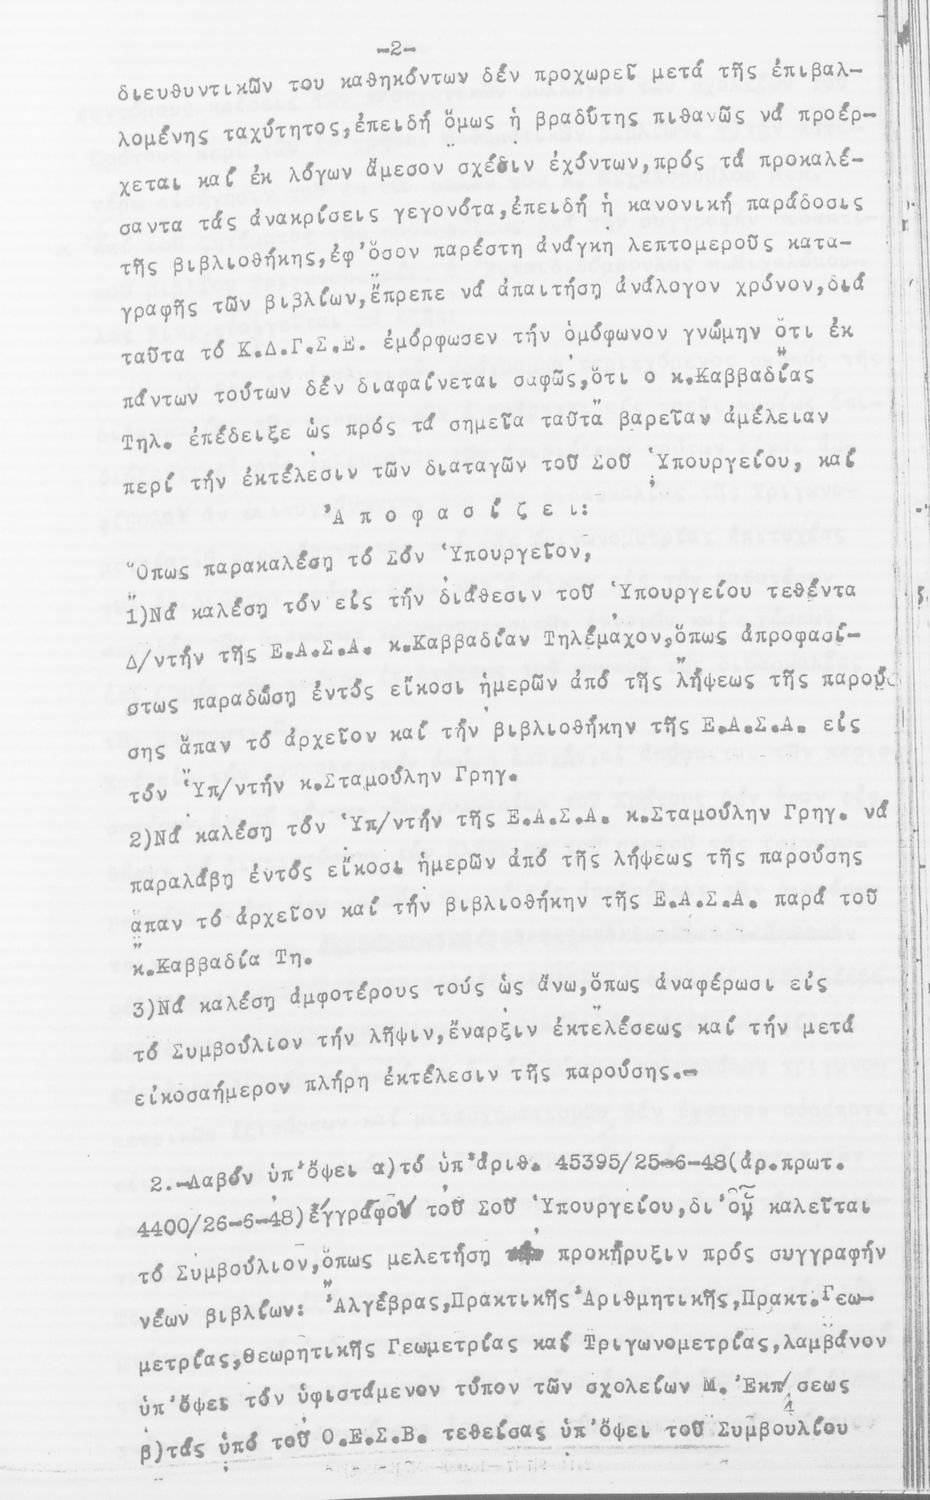 -2-
διευθυντικῶν του καθηκόντων δέν προχωρεῖ μετά τῆς ἐπιβαλ-
λομένης ταχύτητος,ἐπειδή ὅμως ἡ βραδύτης πιθανῶς νά προέρ-
χεται καί ἐκ λόγων ἄμεσον σχέσιν ἐχόντων,πρός τά προκαλέ-
σαντα τάς ἀνακρίσεις γεγονότα,ἐπειδή ἡ κανονική παράδοσις
τῆς βιβλιοθήκης,ἐφ'ὅσον παρέστη ἀνάγκη λεπτομεροῦς κατα-
γραφῆς τῶν βιβλίων,ἔπρεπε νά ἀπαιτήσῃ ἀνάλογον χρόνον,διά
ταῦτα τό Κ.Δ.Γ.Σ.Ε. ἐμόρφωσεν τήν ὁμόφωνον γνώμην ὅτι ἐκ
πάντων τούτων δέν διαφαίνεται σαφῶς,ὅτι ο κ.Καββαδίας
Τηλ. ἐπέδειξε ὡς πρός τά σημεῖα ταῦτα βαρεῖαν ἀμέλειαν
περί τήν ἐκτέλεσιν τῶν διαταγῶν τοῦ Σοῦ Ὑπουργείου, καί
Ἀ π ο φ α σ ί ζ ε ι:
Ὅπως παρακαλέσῃ τό Σόν Ὑπουργεῖον,
1)Νά καλέσῃ τόν εἰς τήν διάθεσιν τοῦ Ὑπουργείου τεθέντα
Δ/ντήν τῆς Ε.Α.Σ.Α. κ.Καββαδίαν Τηλέμαχον,ὅπως ἀπροφασί-
στως παραδώσῃ ἐντός εἴκοσι ἡμερῶν ἀπό τῆς λήψεως τῆς παρού
σης ἅπαν τό ἀρχεῖον καί τήν βιβλιοθήκην τῆς Ε.Α.Σ.Α. εἰς
τόν Ὑπ/ντήν κ.Σταμούλην Γρηγ.
2)Νά καλέσῃ τόν Ὑπ/ντήν τῆς Ε.Α.Σ.Α. κ.Σταμούλην Γρηγ. νά
παραλάβῃ ἐντός εἴκοσι ἡμερῶν ἀπό τῆς λήψεως τῆς παρούσης
ἅπαν τό ἀρχεῖον καί τήν βιβλιοθήκην τῆς Ε.Α.Σ.Α. παρά τοῦ
κ.Καββαδία Τη.
3)Νά καλέσῃ ἀμφοτέρους τούς ὡς ἄνω,ὅπως ἀναφέρωσι εἰς
τό Συμβούλιον τήν λῆψιν,ἔναρξιν ἐκτελέσεως καί τήν μετά
εἰκοσαήμερον πλήρη ἐκτέλεσιν τῆς παρούσης.-
2.-Λαβόν ὑπ'ὄψει α)τό ὑπ'ἀριθ. 45395/25-6-48(ἀρ.πρωτ.
4400/26-6-48)ἔγγραφον τοῦ Σοῦ Ὑπουργείου,δι'οὗ καλεῖται
τό Συμβούλιον,ὅπως μελετήσῃ προκήρυξιν πρός συγγραφήν
νέων βιβλίων: Ἀλγέβρας,Πρακτικῆς Ἀριθμητικῆς,Πρακτ.Γεω-
μετρίας,Θεωρητικῆς Γεωμετρίας καί Τριγωνομετρίας,λαμβάνον
ὑπ'ὄψει τόν ὑφιστάμενον τύπον τῶν σχολείων Μ. Ἐκπ/σεως
β)τάς ὑπό τοῦ Ο.Ε.Σ.Β. τεθείσας ὑπ'ὄψει τοῦ Συμβουλίου